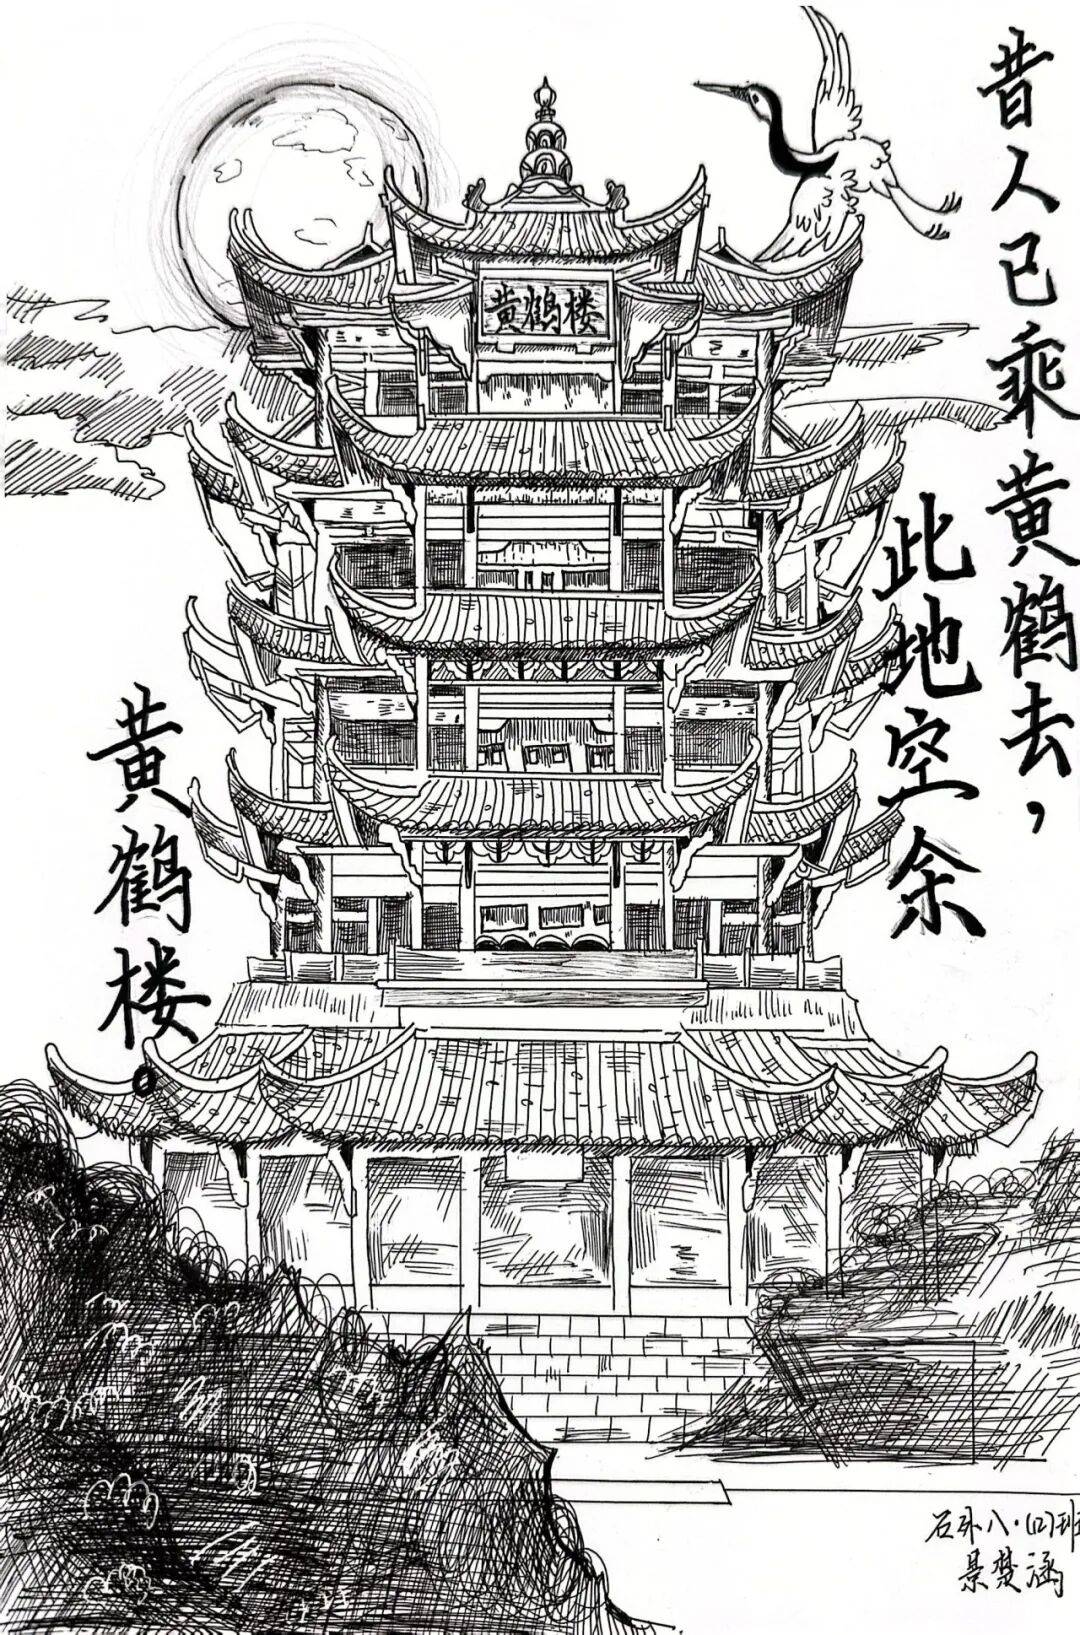 昔人已乘黄鹤去，
此地空余
黄鹤楼。
黄鹤楼
石外八·(12)班
景楚涵